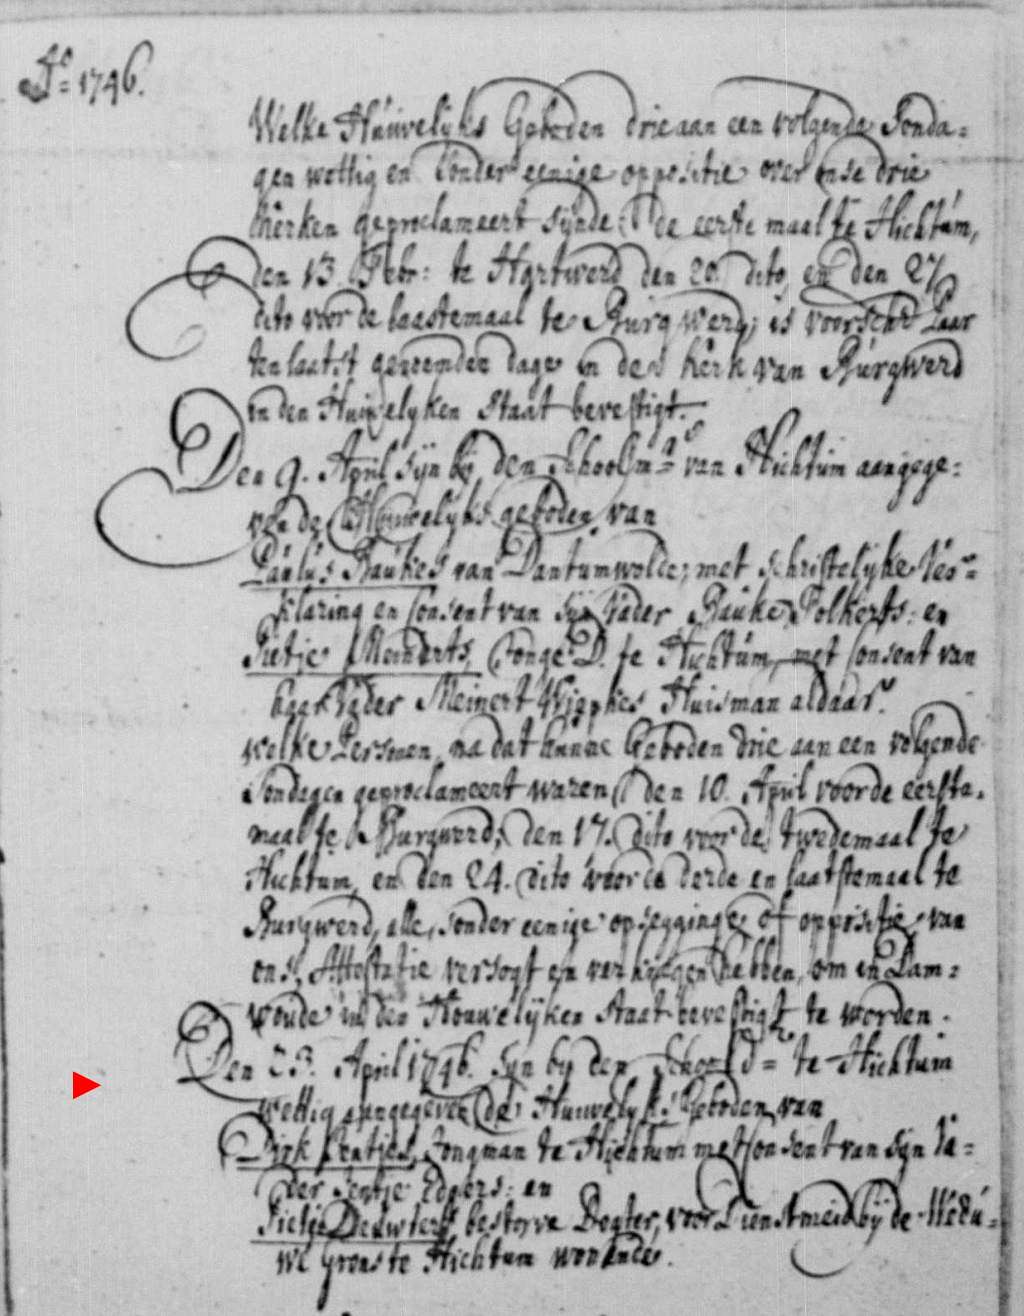 Ao = 1746.
Welke Huwelyks Geboden drie aan een volgende Sonda=
gen wettig en Sonder eenige oppositie over onse drie
kerken geproclameert sijnde de eerste maal te Hichtum,
den 13. Febr: te Hartwerd den 20. dito, en den 27
dito voor de laastemaal te Burgwerd; is voorschr. Paar
ten laatst genoemden dage in de kerk van Burgwerd
in den Huwelyken Staat bevestigt.
Den 9. April sijn bij den Schoolm= van Hichtum aangege=
ven de Houwelyks geboden van
Paulus Baukes van Dantumwolde; met schriftelyke Ver=
klaring en Consent van sijn Vader Bauke Folkerts: en
Pietje Meinerts, Jonge D. te Hichtum, met Consent van
haar Vader Meinert Wjapkes Huisman aldaar.
welke Persoonen, na dat hunne Geboden drie aan een volgende
Sondagen geproclameert waren den 10. April voor de eerste.
maal te Burgwerd; den 17. dito voor de twedemaal te
Hichtum, en den 24. dito voor de derde en laatstemaal te
Burgwerd, alle, sonder eenige opsegginge of oppositie van
ons, Attestatie versogt en verkregen hebben, om in Dam=
woude in den Houwelijken Staat bevestigt te worden.
Den 23. April 1746. Syn by den School d= te Hichtum
wettig aangegeven de Huwelyks Geboden van
Dirk Sentjes, Jongman te Hichtum met Consent van sijn Va=
der Sentje Edgers: en
Pietje Douwters bestorve Dogter, voor Dienstmeid bij de Wedu=
we te Hichtum wonende.